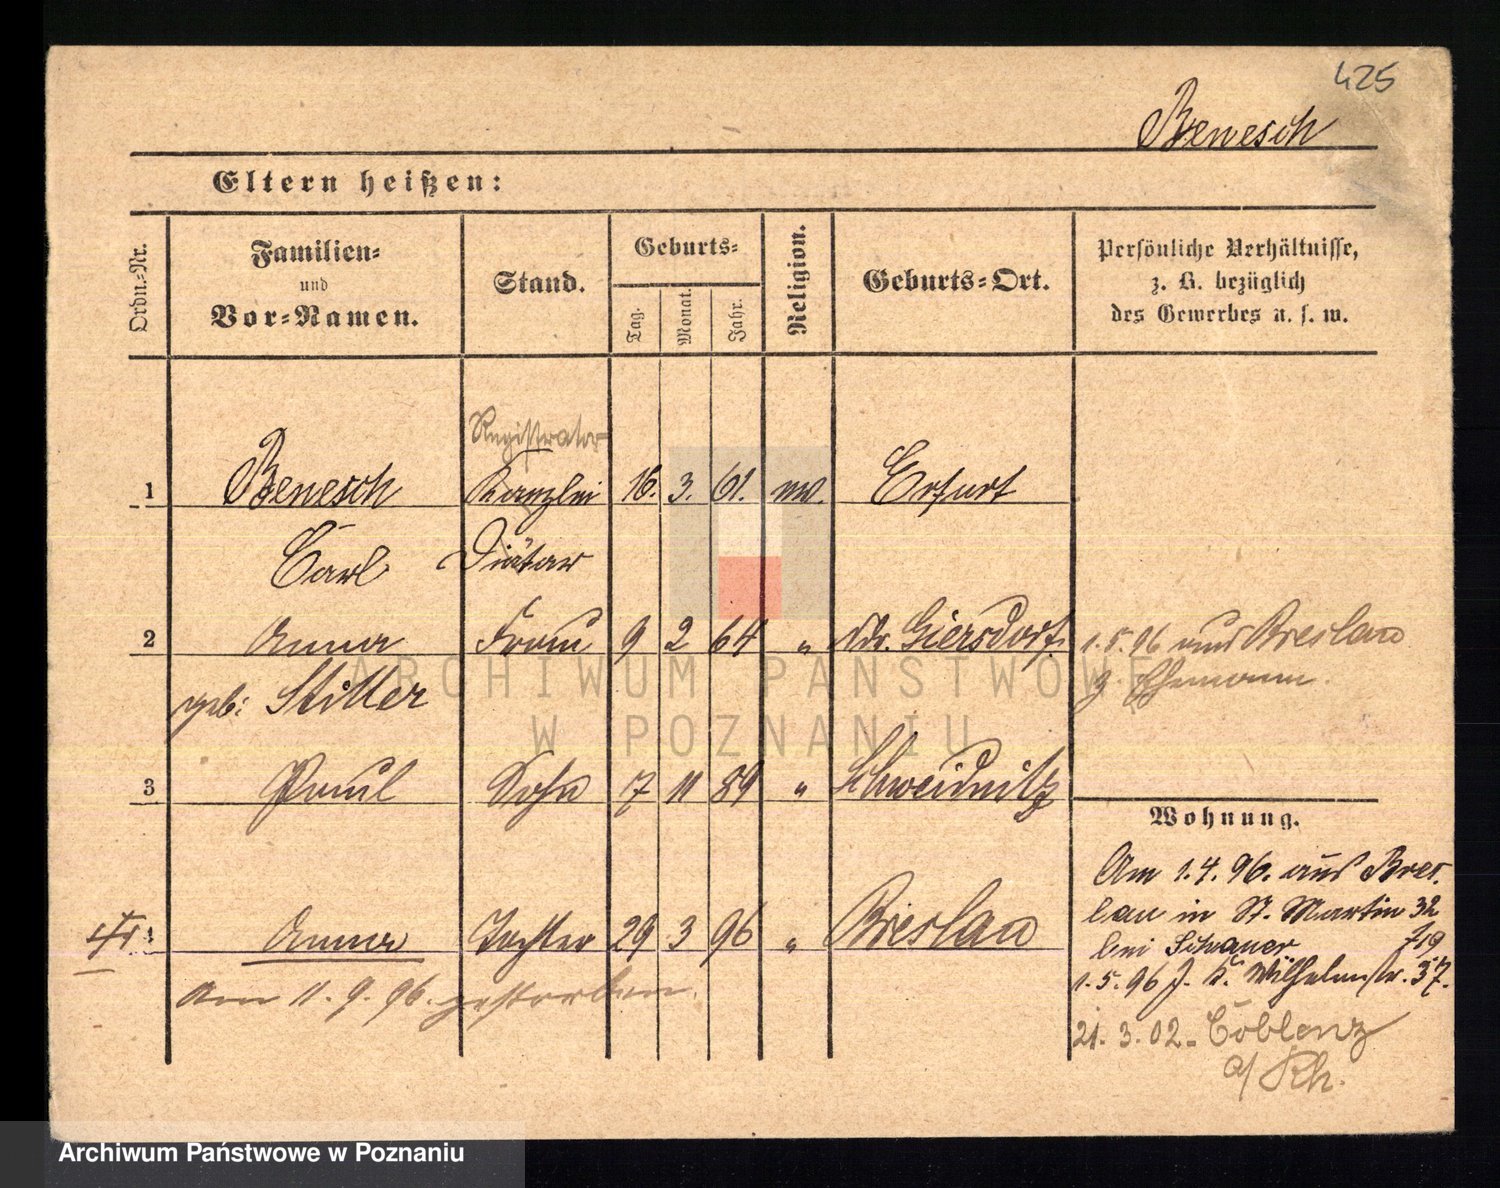 425
Benesch
Eltern heißen:
Ordn.-Nr.
Familien-
und
Vor-Namen.
Stand.
Geburts-
Tag.
Monat.
Jahr.
Religion.
Geburts-Ort.
Persönliche Verhältnisse,
z. B. bezüglich
des Gewerbes u. s. w.
Registrator
1 Benesch Kanzlei 16. 3. 61. ev. Erfurt
Carl Diätar
2 Anna Frau 9 2 64 " Ndr. Giersdorf 1.5.96 aus Breslau
geb: Stiller z Ehemann.
3 Paul Sohn 7 11 89 " Schweidnitz
Wohnung.
Am 1.4.96. aus Bres-
lau in St. Martin 32
bei Schauer
4 Anna Tochter 29 3 96 " Breslau
1.5.96 Wilhelmstr. 57.
Am 11.9.96. gestorben.
21.3.02. Coblenz
a/ Rh.
ARCHIWUM PAŃSTWOWE
W POZNANIU
Archiwum Państwowe w Poznaniu